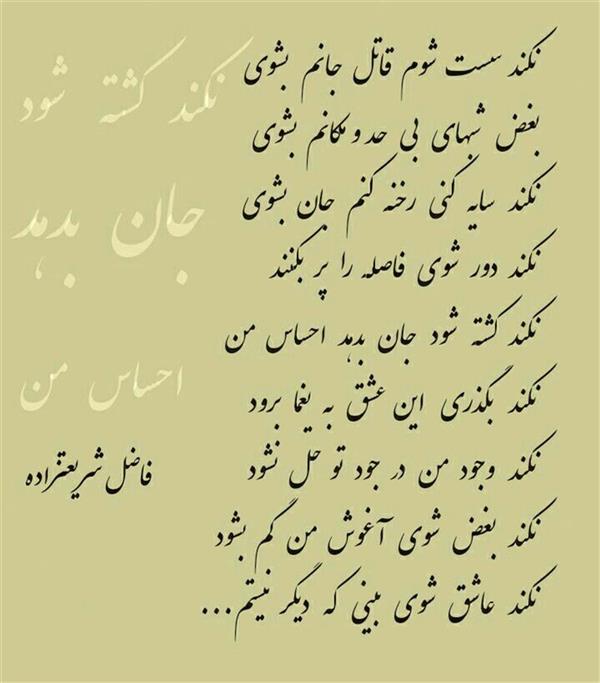 نکند سست شوم قاتل جانم بشوی
بغض شبهای بی حد و مکانم بشوی
نکند سایه کنی رخنه کنم جان بشوی
نکند دور شوی فاصله را پر بکنند
نکند کشته شود جان بدهد احساس من
نکند بگذری این عشق به یغما برود
نکند وجود من در جود تو حل نشود
نکند بغض شوی آغوش من گم بشود
نکند عاشق شوی بینی که دیگر نیستم...
نکند کشته شود
جان بدهد
احساس من
فاضل شریعتزاده